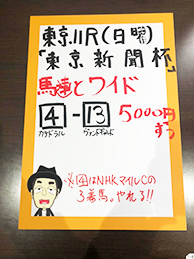 東京11R(日曜)
「東京新聞杯」
馬連とワイド
4-13 5000円
カテドラル ヴァンドギャルド ずつ
※4はNHKマイルCの
3着馬。やれる!!